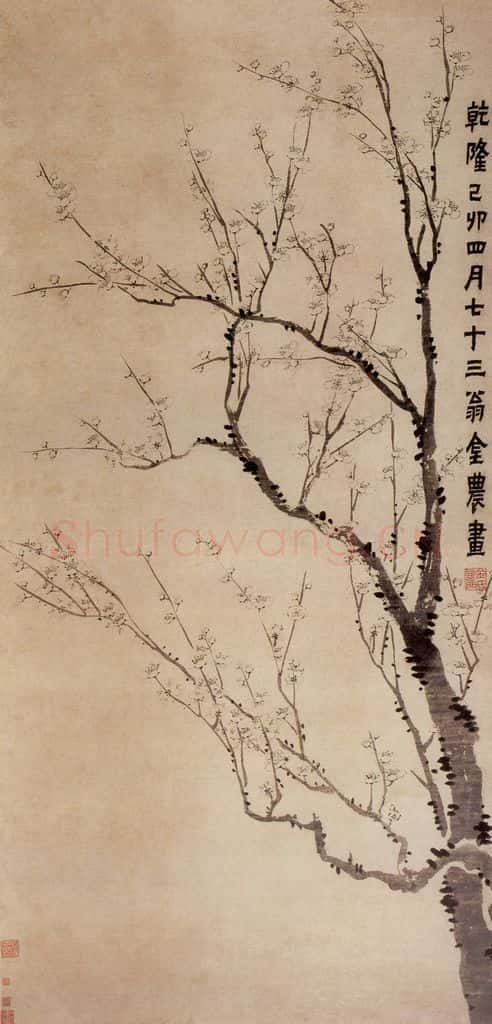 乾隆己卯四月七十三翁金農畫
Shufawang.cn